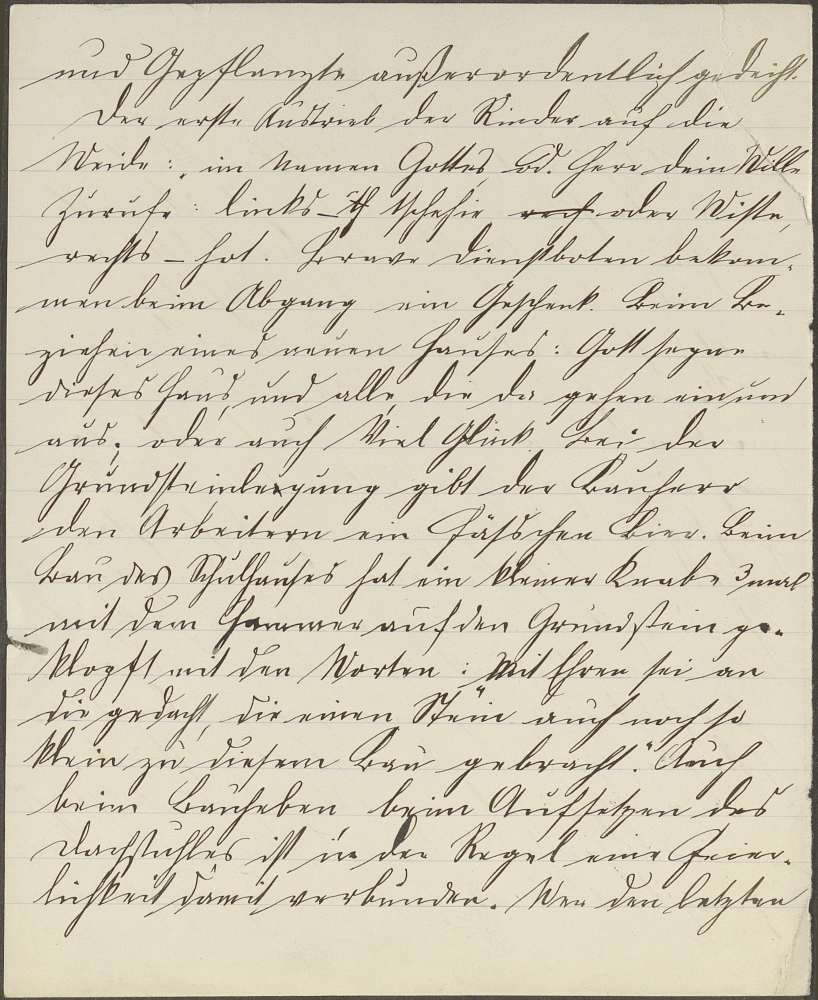 und Gepflanzte außerordentlich gedeiht.
Der erste Austrieb der Rinder auf die
Weide: im Namen Gottes od. Herr dein Wille
Zurufe: links – tschehie oder Wiste,
rechts – hot. Brave Dienstboten bekom-
men beim Abgang ein Geschenk. Beim Be-
ziehen eines neuen Hauses: Gott segne
dieses Haus, und alle, die da gehen ein und
aus; oder auch Viel Glück. Bei der
Grundsteinlegung gibt der Bauherr
den Arbeitern ein Fässchen Bier. Beim
Bau des Schulhauses hat ein kleiner Knabe 3 mal
mit dem Hammer auf den Grundstein ge-
klopft mit den Worten: Mit Ehren sei an
die gedacht, die einen Stein auch noch so
klein zu diesem Bau gebracht." Auch
beim Bauheben beim Aufsetzen des
Dachstuhles ist in der Regel eine Feier-
lichkeit damit verbunden. Wer den letzten